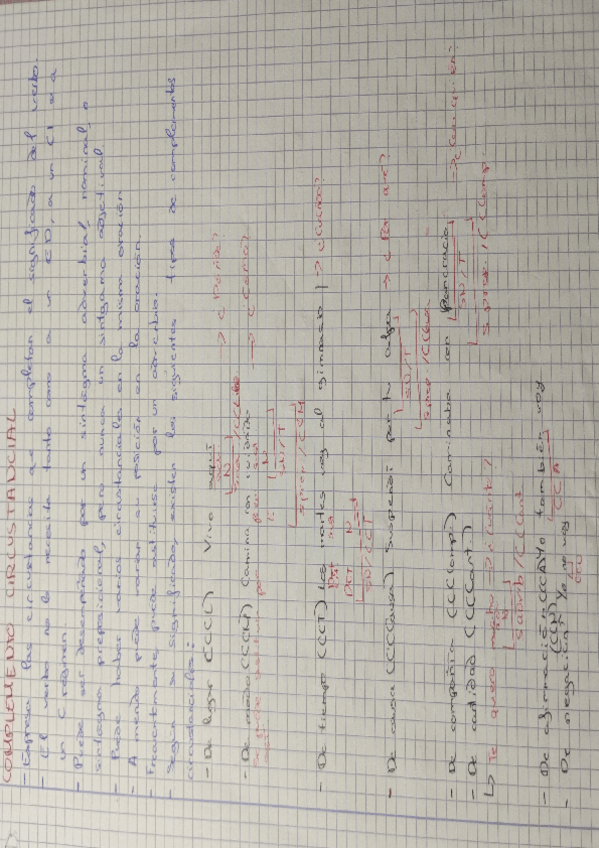 COMPLEMENTO CIRCUSTANCIAL
- Expresa las circustancias que completan el significado del verbo.
- El verbo no lo necesita tanto como a un CD, a un CI o a
un C régimen.
- Puede ser desempeñado por un sintagma adverbial, nominal, o
sintagma preposicional, pero nunca un sintagma adjetival.
- Puede haber varios circustanciales en la misma oración
- A menudo puede variar su posición en la oración.
- Frecuentemente puede sustituirse por un adverbio.
- Según su significado, existen los siguientes tipos de complementos
circustanciales:
- De lugar (CCL) Vivo aquí → ¿Dónde?
N
Sadv/CCL
- De modo (CCM) Camina con cuidado → ¿Cómo?
Se puede sustituir por
N
SN/T
Sprep/CCM
- De tiempo (CCT) Los martes voy al gimnasio → ¿Cuándo?
Det N
SN/CCT
- De causa (CCCausa) Suspendí por tu culpa → ¿Por qué?
SN/T
Sprep/CCCausa
- De compañía (CCComp) Caminaba con Pancracio → ¿Con quién?
SN/T
Sprep/CCComp.
- De cantidad (CCCant)
↳ Te quero mucho → ¿Cuánto?
N
Sadvb/CCCant
- De afirmación (CCA) Yo también voy
CCA
- De negación (CCN) Yo no voy
CCN